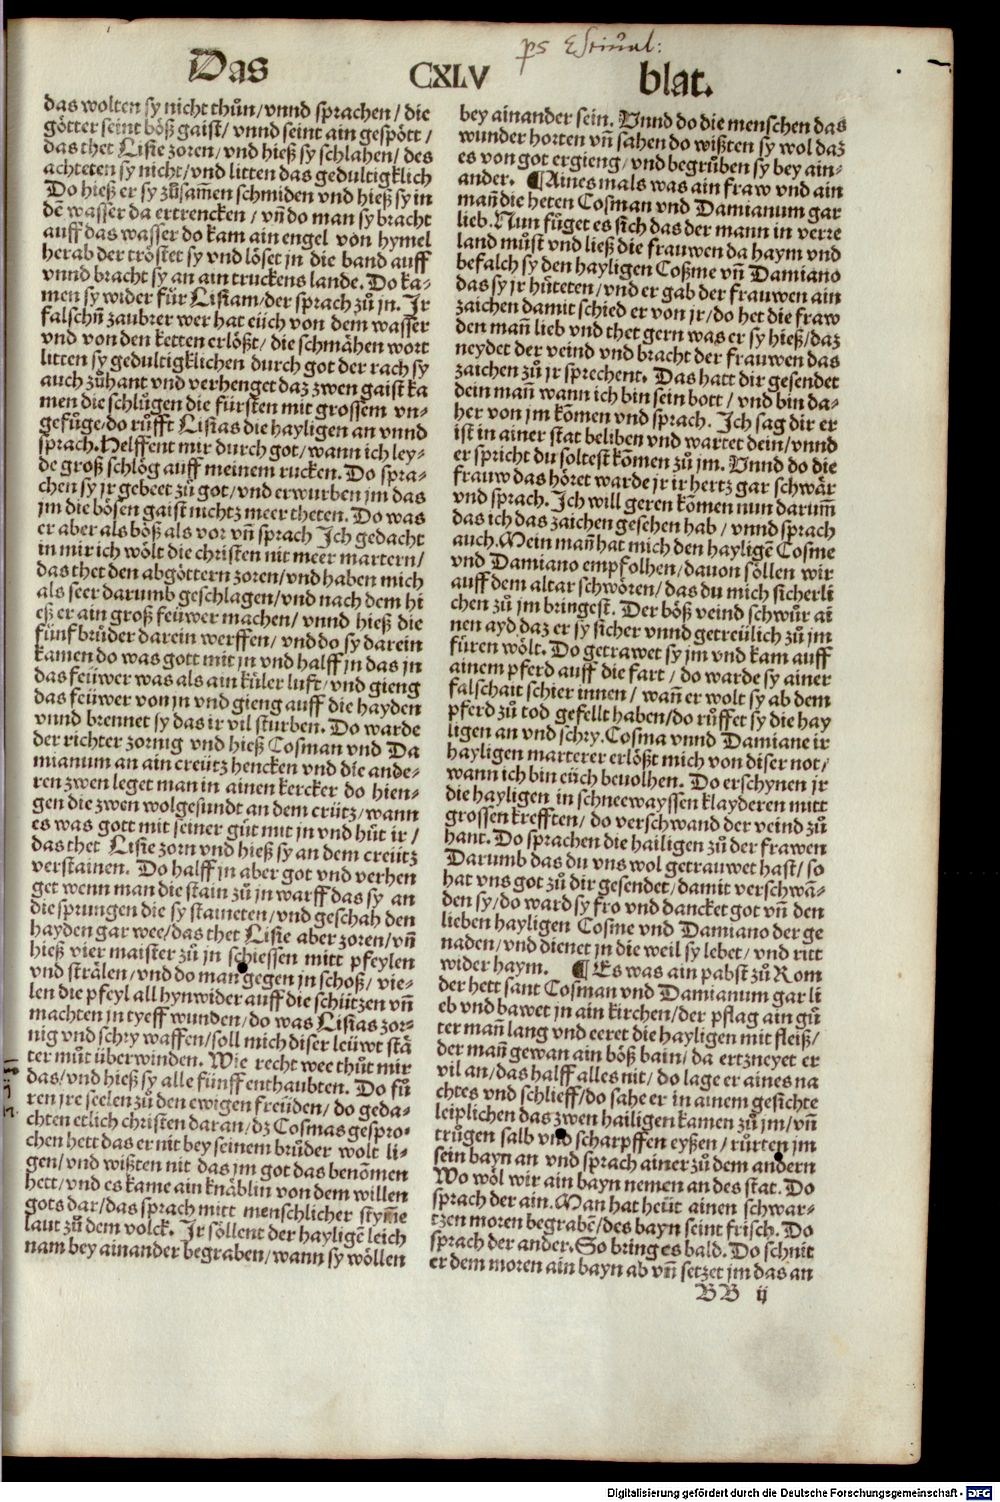 ps Estiual:
Das CXLV blat.
das wolten sy nicht thůn/vnnd sprachen/ die
götter seint böß gaist/ vnnd seint ain gespött/
das thet Lisie zoren/vnd hieß sy schlahen/ des
achteten sy nicht/vnd litten das gedultigklich
Do hieß er sy zůsam̃en schmiden vnd hieß sy in
dē wasser da ertrencken / vñ do man sy bracht
auff das wasser do kam ain engel von hymel
herab der tröstet sy vnd löset jn die band auff
vnnd bracht sy an ain truckens lande. Do ka-
men sy wider für Lisiam/der sprach zů jn. Ir
falschñ zaubrer wer hat eüch von dem wasser
vnd von den ketten erlößt/ die schmähen wort
litten sy gedultigklichen durch got der rach sy
auch zůhant vnd verhenget daz zwen gaist ka
men die schlůgen die fürsten mit grossem vn-
gefůge/do růfft Lisias die hayligen an vnnd
sprach. Helffent mir durch got/ wann ich ley-
de groß schlög auff meinem rucken. Do spra-
chen sy jr gebeet zů got/vnd erwurben jm das
jm die bösen gaist nichtz meer theten. Do was
er aber als böß als vor vñ sprach Ich gedacht
in mir ich wölt die christen nit meer martern/
das thet den abgöttern zoren/vnd haben mich
als seer darumb geschlagen/vnd nach dem hi
eß er ain groß feüwer machen/ vnnd hieß die
fünf brůder darein werffen/ vnd do sy darein
kamen do was gott mit jn vnd halff jn das jn
das feüwer was als ain küler luft/ vnd gieng
das feüwer von jn vnd gieng auff die hayden
vnnd brennet sy das ir vil sturben. Do warde
der richter zornig vnd hieß Cosman vnd Da
mianum an ain creütz hencken vnd die ande-
ren zwen leget man in ainen kercker do hien-
gen die zwen wolgesundt an dem crütz/ wann
es was gott mit seiner gůt mit jn vnd hůt ir /
das thet Lisie zorn vnd hieß sy an dem creütz
verstainen. Do halff jn aber got vnd verhen
get wenn man die stain zů jn warff das sy an
die sprungen die sy staineten/ vnd geschah den
hayden gar wee/das thet Lisie aber zoren/ vñ
hieß vier maister zů jn schiessen mitt pfeylen
vnd strälen/ vnd do man gegen jn schoß/ vie-
len die pfeyl all hynwider auff die schützen vñ
machten in tyeff wunden/ do was Lisias zor-
nig vnd schry waffen/ soll mich diser leüwt stä
ter můt überwinden. Wie recht wee thůt mir
das/ vnd hieß sy alle fünff enthaubten. Do fů
ren jre seelen zů den ewigen freüden/ do geda-
chten etlich christen daran/ dz Cosmas gespro-
chen hett das er nit bey seinem brůder wolt li-
gen/ vnd wißten nit das jm got das benōmen
hett/ vnd es kame ain knäblin von dem willen
gots dar/ das sprach mitt menschlicher stym̃e
laut zů dem volck. Ir söllent der hayligē leich
nam bey ainander begraben/ wann sy wöllen
bey ainander sein. Vnnd do die menschen das
wunder horten vñ sahen do wißten sy wol daz
es von got ergieng/ vnd begrůben sy bey ain-
ander. ¶ Aines mals was ain fraw vnd ain
mañ die heten Cosman vnd Damianum gar
lieb. Nun fůget es sich das der mann in verre
land můst vnd ließ die frauwen da haym vnd
befalch sy den hayligen Coßme vñ Damiano
das sy jr hůteten/ vnd er gab der frauwen ain
zaichen damit schied er von jr/ do het die fraw
den mañ lieb vnd thet gern was er sy hieß/ daz
neydet der veind vnd bracht der frauwen das
zaichen zů jr sprechent. Das hatt dir gesendet
dein mañ wann ich bin sein bott / vnd bin da-
her von jm kōmen vnd sprach. Ich sag dir er
ist in ainer stat beliben vnd wartet dein/ vnnd
er spricht du soltest kōmen zů jm. Vnnd do die
frauw das höret warde jr ir hertz gar schwär
vnd sprach. Ich will geren kōmen nun darum̃
das ich das zaichen gesehen hab / vnnd sprach
auch. Mein mañ hat mich den hayligē Cosme
vnd Damiano empfolhen/ dauon söllen wir
auff dem altar schwören/ das du mich sicherli
chen zů jm bringest. Der böß veind schwůr ai
nen ayd daz er sy sicher vnnd getreülich zů jm
füren wölt. Do getrawet sy jm vnd kam auff
ainem pferd auff die fart / do warde sy ainer
falschait schier innen/ wañ er wolt sy ab dem
pferd zů tod gefellt haben/ do růffet sy die hay
ligen an vnd schry. Cosma vnnd Damiane ir
hayligen marterer erlößt mich von diser not/
wann ich bin eüch beuolhen. Do erschynen jr
die hayligen in schneewayssen klayderen mitt
grossen krefften/ do verschwand der veind zů
hant. Do sprachen die hailigen zů der frawen
Darumb das du vns wol getrauwet hast/ so
hat vns got zů dir gesendet/ damit verschwā-
den sy/ do ward sy fro vnd dancket got vñ den
lieben hayligen Cosme vnd Damiano der ge
naden/ vnd dienet jn die weil sy lebet/ vnd ritt
wider haym. ¶ Es was ain pabst zů Rom
der hett sant Cosman vnd Damianum gar li
eb vnd bawet jn ain kirchen/ der pflag ain gů
ter mañ lang vnd eeret die hayligen mit fleiß/
der mañ gewan ain böß bain/ da ertzneyet er
vil an/ das halff alles nit/ do lage er aines na
chtes vnd schlieff/ do sahe er in ainem gesichte
leiplichen das zwen hailigen kamen zů jm/ vñ
trůgen salb vnd scharpffen eyßen/ růrten jm
sein bayn an vnd sprach ainer zů dem andern
Wo wöl wir ain bayn nemen an des stat. Do
sprach der ain. Man hat heüt ainen schwar-
tzen moren begrabē/ des bayn seint frisch. Do
sprach der ander. So bring es bald. Do schnit
er dem moren ain bayn ab vñ setzet jm das an
BB ij
Digitalisierung gefördert durch die Deutsche Forschungsgemeinschaft - DFG